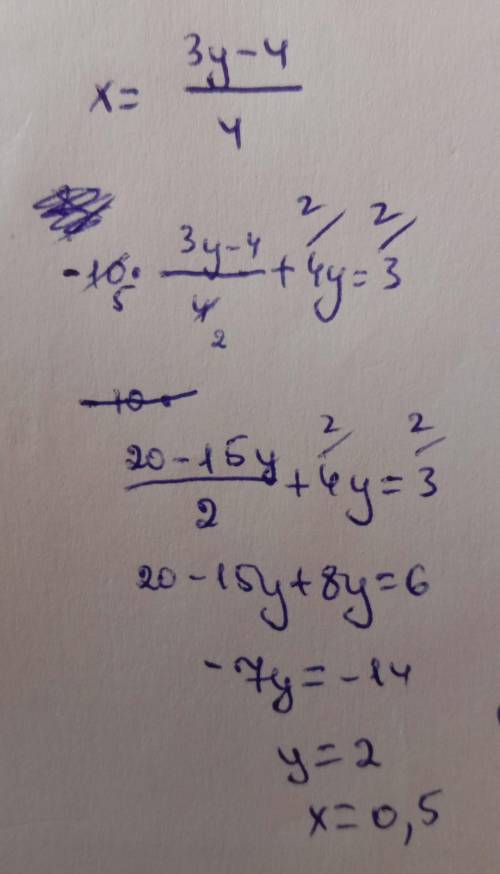 x = (3y-4)/4
-10 · (3y-4)/4 + 4y = 3
5 2 2 2
-10 ·
(20-15y)/2 + 4y = 3
2 2
20-15y+8y=6
-7y=-14
y=2
x=0,5